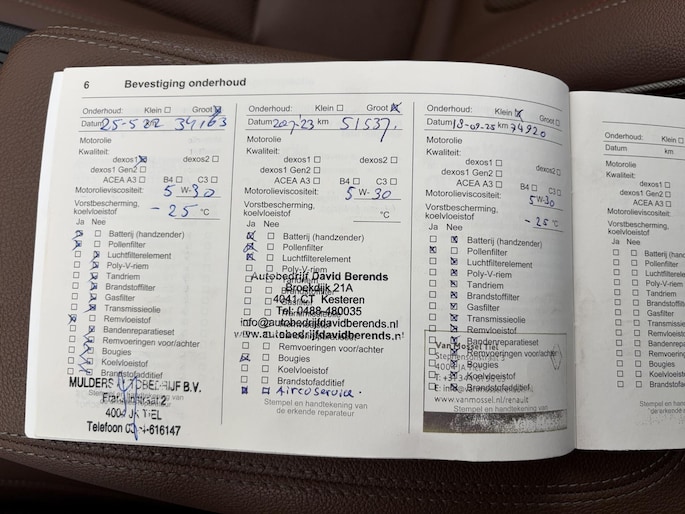 6 Bevestiging onderhoud
Onderhoud: Klein ☐ Groot ☒
Datum 25-5 22 km 34163
Motorolie
Kwaliteit:
dexos1 ☒ dexos2 ☐
dexos1 Gen2 ☐
ACEA A3 ☐ B4 ☐ C3 ☐
Motorolieviscositeit: 5 W-30
Vorstbescherming,
koelvloeistof -25 °C
Ja Nee
Batterij (handzender)
Pollenfilter
Luchtfilterelement
Poly-V-riem
Tandriem
Brandstoffilter
Gasfilter
Transmissieolie
Remvloeistof
Bandenreparatieset
Remvoeringen voor/achter
Bougies
Koelvloeistof
Brandstofadditief
MULDERS B.V.
TIEL
Telefoon
Onderhoud: Klein ☐ Groot ☒
Datum '23 km 51537
Motorolie
Kwaliteit:
dexos1 ☐ dexos2 ☐
dexos1 Gen2 ☐
ACEA A3 ☐ B4 ☐ C3 ☐
Motorolieviscositeit: 5 W-30
Vorstbescherming,
koelvloeistof °C
Ja Nee
Batterij (handzender)
Pollenfilter
Luchtfilterelement
Poly-V-riem
Autobedrijf David Berends
Broekdijk 21A
4041 CT Kesteren
Tel. 0488-480035
info@autobedrijfdavidberends.nl
www.autobedrijfdavidberends.nl
Remvoeringen voor/achter
Bougies
Koelvloeistof
Brandstofadditief
Aircoservice
Stempel en handtekening van
de erkende reparateur
Onderhoud: Klein ☒ Groot ☐
Datum 18-09-25 km 74920
Motorolie
Kwaliteit:
dexos1 ☐ dexos2 ☐
dexos1 Gen2 ☐
ACEA A3 ☐ B4 ☐ C3 ☐
Motorolieviscositeit: 5 W-30
Vorstbescherming,
koelvloeistof -25 °C
Ja Nee
Batterij (handzender)
Pollenfilter
Luchtfilterelement
Poly-V-riem
Tandriem
Brandstoffilter
Gasfilter
Transmissieolie
Remvloeistof
Bandenreparatieset
Van Mossel Tiel
Remvoeringen voor/achter
Bougies
Koelvloeistof
Brandstofadditief
www.vanmossel.nl/renault
Stempel en handtekening van
Onderhoud: Klein ☐
Datum km
Motorolie
Kwaliteit:
dexos1 ☐
dexos1 Gen2 ☐
ACEA A3 ☐
Motorolieviscositeit:
Vorstbescherming,
koelvloeistof
Ja Nee
Batterij (hand
Pollenfilter
Luchtfilterele
Poly-V-riem
Tandriem
Brandstoffilt
Gasfilter
Transmissie
Remvloeist
Bandenrep
Remvoerin
Bougies
Koelvloeis
Brandsto
Stempel en han
de erkende re